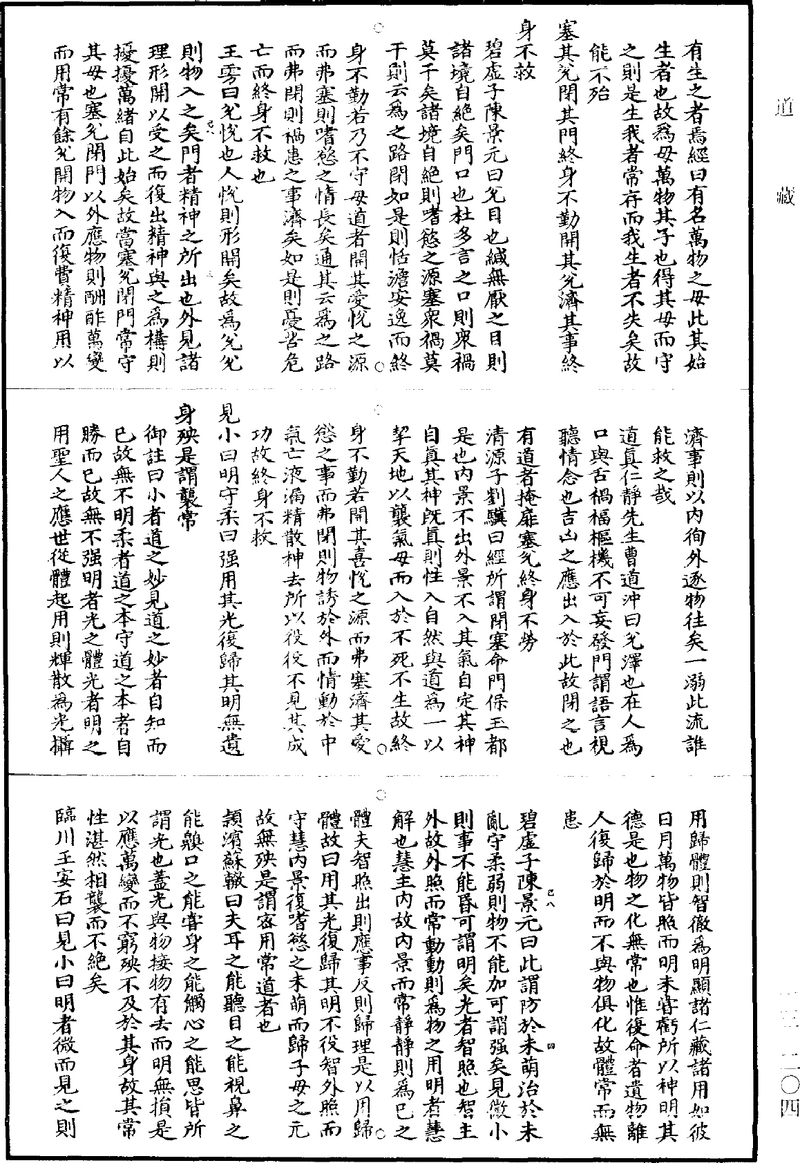 道藏
有生之者焉經曰有名萬物之母此其始
生者也故爲母萬物其子也得其母而守
之則是生我者常存而我生者不失矣故
能不殆
塞其兌閉其門終身不勤開其兌濟其事終
身不救
碧虛子陳景元曰兌目也緘無厭之目則
諸境自絕矣門口也杜多言之口則衆禍
莫干矣諸境自絕則嗜慾之源塞衆禍莫
干則云爲之路閉如是則恬澹安逸而終
身不勤若乃不守母道者開其愛悅之源
而弗塞則嗜慾之情長矣通其云爲之路
而弗閉則禍患之事濟矣如是則憂苦危
亡而終身不救也
王雱曰兌悅也人悅則形開矣故爲兌兌
則物入之矣門者精神之所出也外見諸
理形開以受之而復出精神與之爲構則
擾擾萬緒自此始矣故當塞兌閉門常守
其母也塞兌閉門以外應物則酬酢萬變
而用常有餘兌開物入而復費精神用以
濟事則以內徇外逐物往矣一溺此流誰
能救之哉
道真仁靜先生曹道沖曰兌澤也在人爲
口與舌禍福樞機不可妄發門謂語言視
聽情念也吉凶之應出入於此故閉之也
有道者掩扉塞兌終身不勞
清源子劉驥曰經所謂閉塞命門保玉都
是也內景不出外景不入其氣自定其神
自真其神既真則性入自然與道爲一以
挈天地以襲氣母而入於不死不生故終
身不勤若開其喜悅之源而弗塞濟其愛
慾之事而弗閉則物誘於外而情動於中
氣亡液漏精散神去所以役役不見其成
功故終身不救
見小曰明守柔曰强用其光復歸其明無遺
身殃是謂襲常
御註曰小者道之妙見道之妙者自知而
已故無不明柔者道之本守道之本者自
勝而已故無不强明者光之體光者明之
用聖人之應世從體起用則輝散爲光攝
用歸體則智徹爲明顯諸仁藏諸用如彼
日月萬物皆照而明未嘗虧所以神明其
德是也物之化無常也惟復命者遺物離
人復歸於明而不與物俱化故體常而無
患
碧虛子陳景元曰此謂防於未萌治於未
亂守柔弱則物不能加可謂强矣見微小
則事不能昏可謂明矣光者智照也智主
外故外照而常動動則爲物之用明者慧
解也慧主內故內景而常靜靜則爲己之
體夫智照出則應事反則歸理是以用歸
體故曰用其光復歸其明不役智外照而
守慧內景復嗜慾之未萌而歸子母之元
故無殃是謂密用常道者也
潁濱蘇轍曰夫耳之能聽目之能視鼻之
能齅口之能嘗身之能觸心之能思皆所
謂光也蓋光與物接物有去而明無損是
以應萬變而不窮殃不及於其身故其常
性湛然相襲而不絕矣
臨川王安石曰見小曰明者微而見之則
己八
四
一三
二〇四